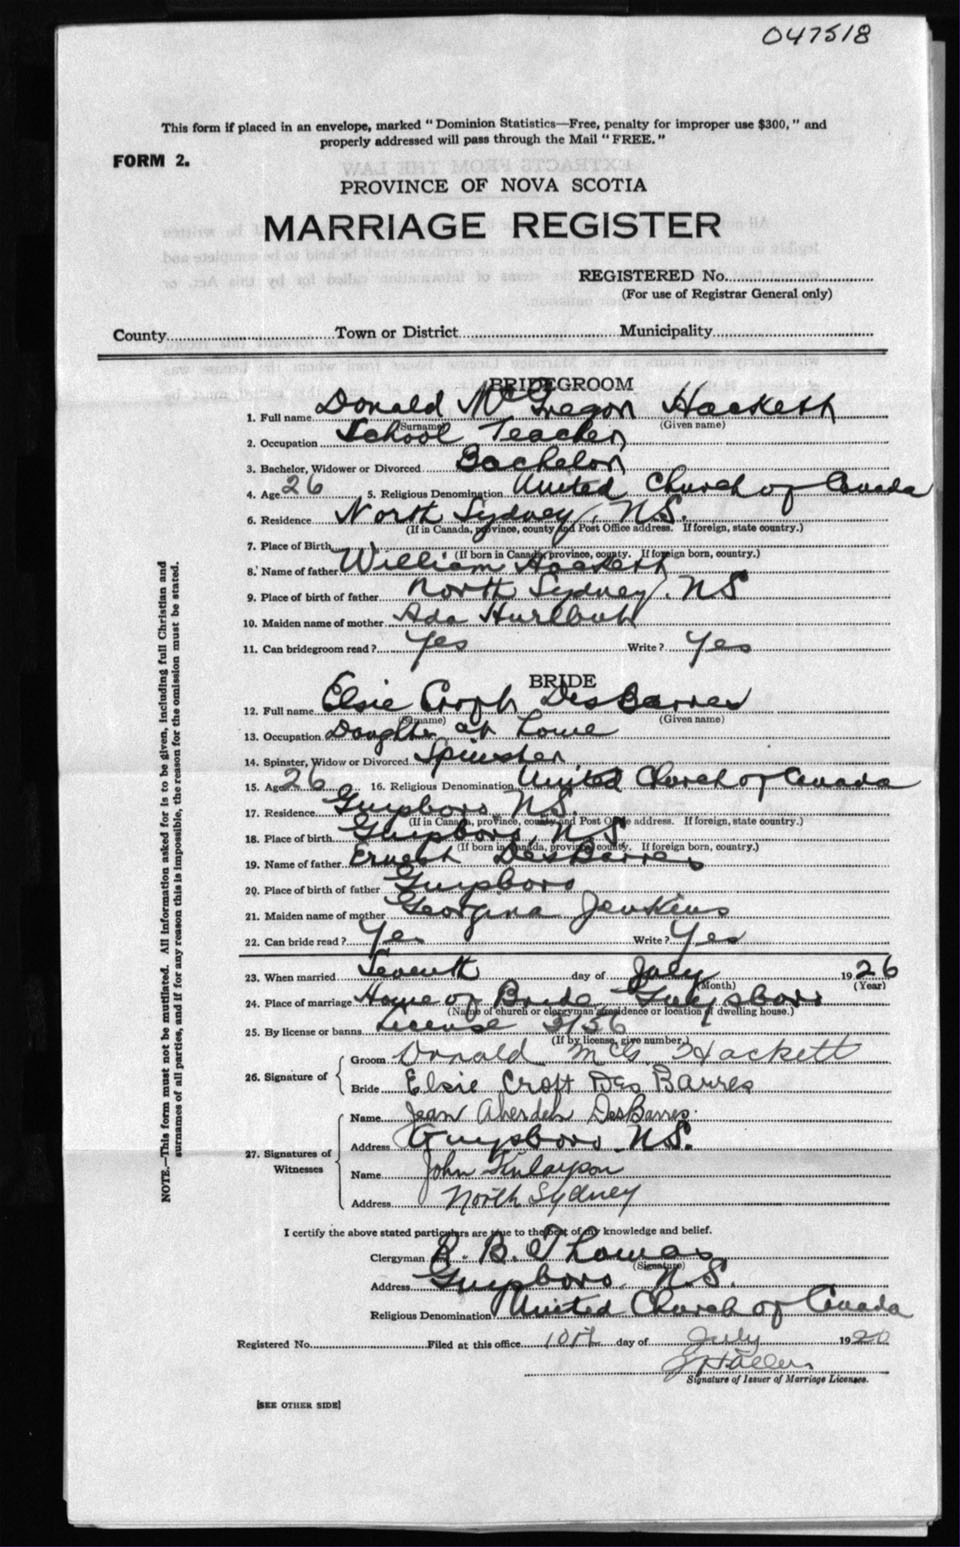 047518
This form if placed in an envelope, marked "Dominion Statistics—Free, penalty for improper use $300," and
properly addressed will pass through the Mail "FREE."
FORM 2.
PROVINCE OF NOVA SCOTIA
MARRIAGE REGISTER
REGISTERED No.
(For use of Registrar General only)
County Town or District Municipality
BRIDEGROOM
1. Full name Donald McGregor Hackett
(Surname) (Given name)
2. Occupation School Teacher
3. Bachelor, Widower or Divorced Bachelor
4. Age 26 5. Religious Denomination United Church of Canada
6. Residence North Sydney, N.S.
(If in Canada, province, county and Post Office address. If foreign, state country.)
7. Place of Birth
(If born in Canada, province, county. If foreign born, country.)
8. Name of father William Hackett
9. Place of birth of father North Sydney, NS
10. Maiden name of mother Ada Hurlbut
11. Can bridegroom read? Yes Write? Yes
BRIDE
12. Full name Elsie Croft DesBarres
(Surname) (Given name)
13. Occupation Daughter at home
14. Spinster, Widow or Divorced Spinster
15. Age 26 16. Religious Denomination United Church of Canada
17. Residence Guysboro N.S.
(If in Canada, province, county and Post Office address. If foreign, state country.)
18. Place of birth Guysboro, N.S
(If born in Canada, province, county. If foreign born, country.)
19. Name of father Ernest DesBarres
20. Place of birth of father Guysboro
21. Maiden name of mother Georgina Jenkins
22. Can bride read? Yes Write? Yes
23. When married Seventh day of July 1926
(Month) (Year)
24. Place of marriage Home of Bride, Guysboro
(Name of church or clergyman's residence or location of dwelling house.)
25. By license or banns License 2156
(If by license, give number.)
26. Signature of
Groom Donald McG Hackett
Bride Elsie Croft Des Barres
27. Signatures of Witnesses
Name Jean DesBarres
Address Guysboro N.S.
Name John Finlayson
Address North Sydney
I certify the above stated particulars are true to the best of my knowledge and belief.
Clergyman R. B. Thomas
(Signature)
Address Guysboro, N.S.
Religious Denomination United Church of Canada
Registered No. Filed at this office 10th day of July 1920
Signature of Issuer of Marriage Licenses.
[SEE OTHER SIDE]
NOTE.—This form must not be mutilated. All information asked for is to be given, including full Christian and
surnames of all parties, and if for any reason this is impossible, the reason for the omission must be stated.